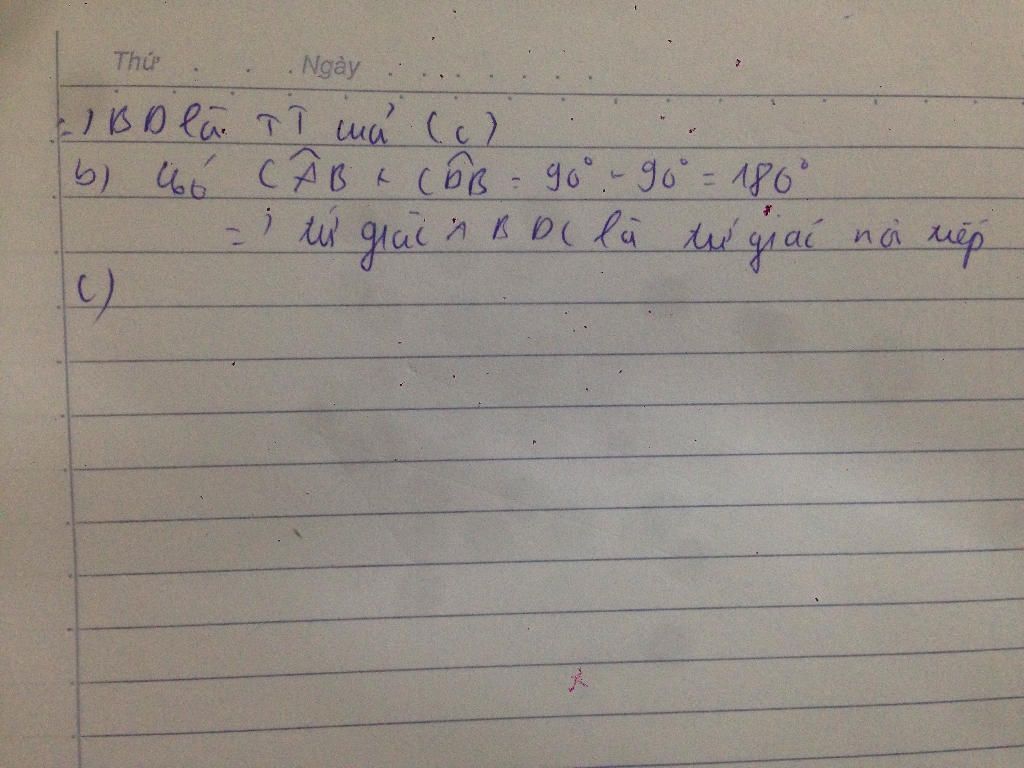 Thứ . . . Ngày . . . . . . . .
=) BD là TT của (c)
b) Có CÂB + CD̂B = 90° - 90° = 180°
=) tứ giác ABDC là tứ giác nội tiếp
c)